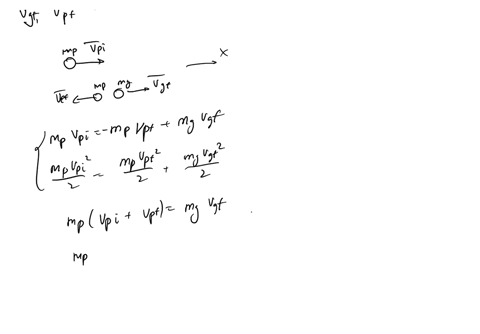 Vgf, Vpf
mp Vpi
x
Vpf mp mg Vgf
mp Vpi = -mp Vpf + mg Vgf
mp Vpi²/2 = mp Vpf²/2 + mg Vgf²/2
mp (Vpi + Vpf) = mg Vgf
mp